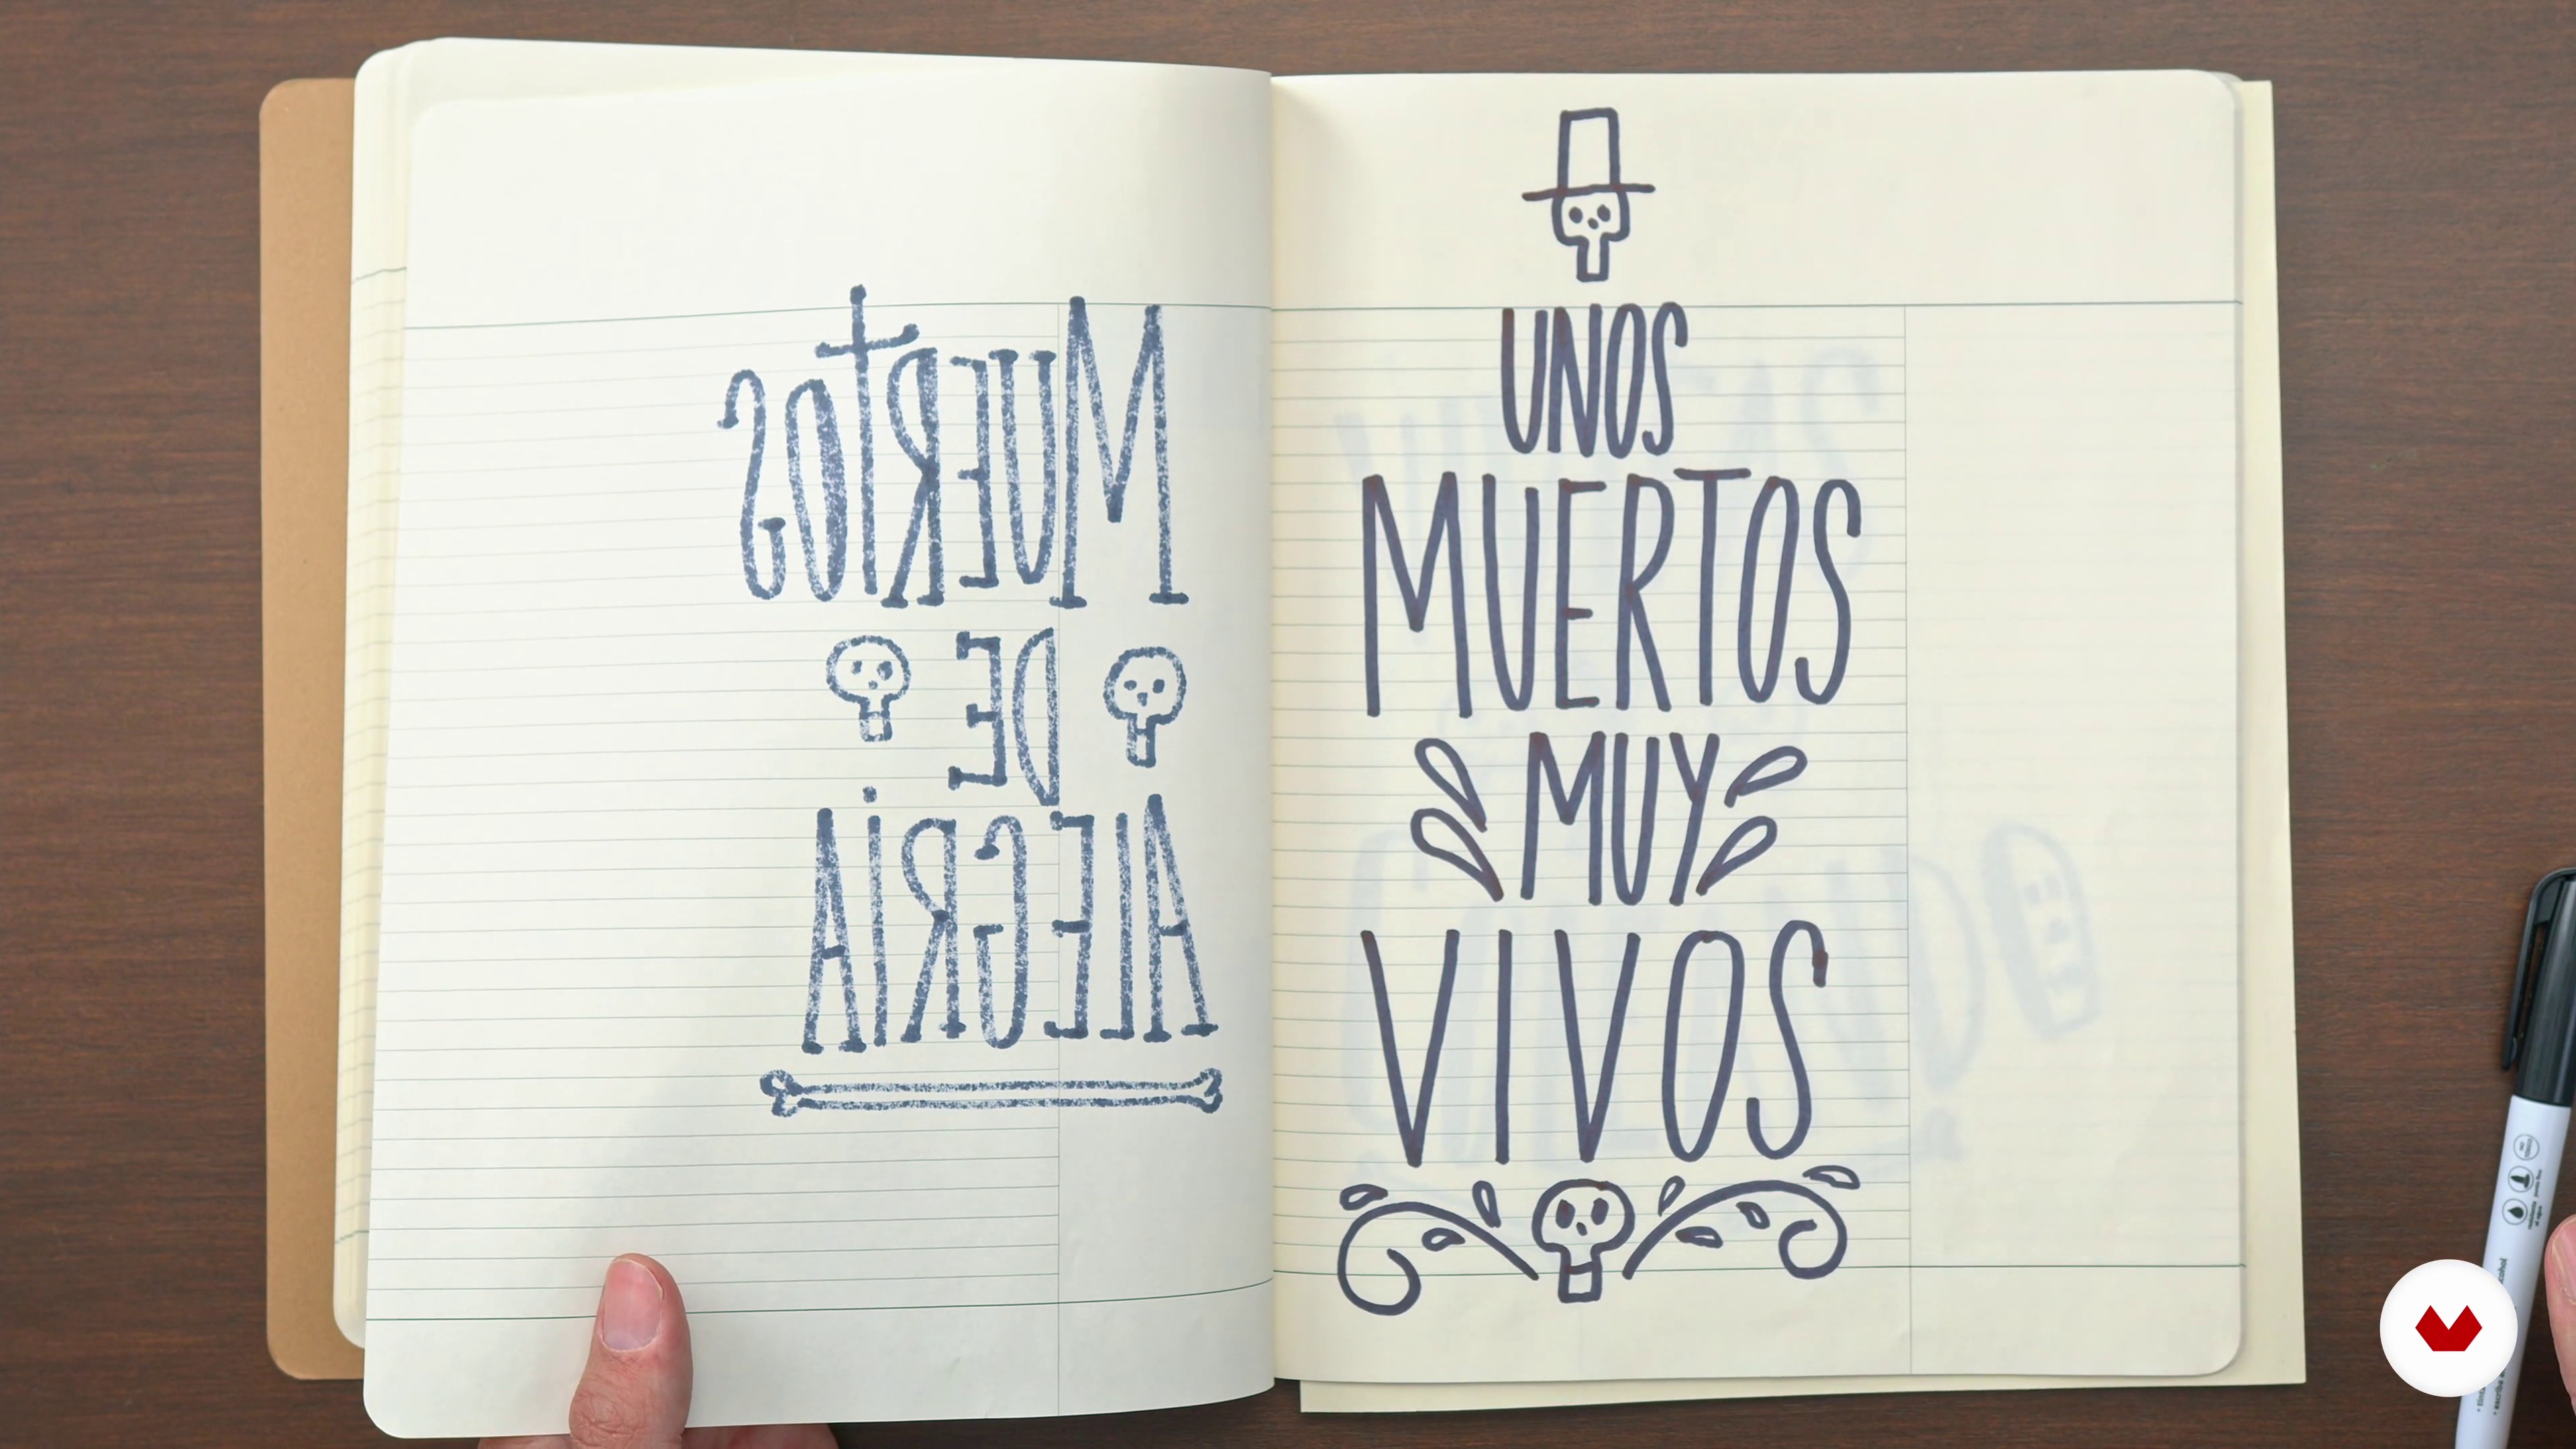 MUERTOS
DE
ALEGRiA
UNOS
MUERTOS
MUY
VIVOS